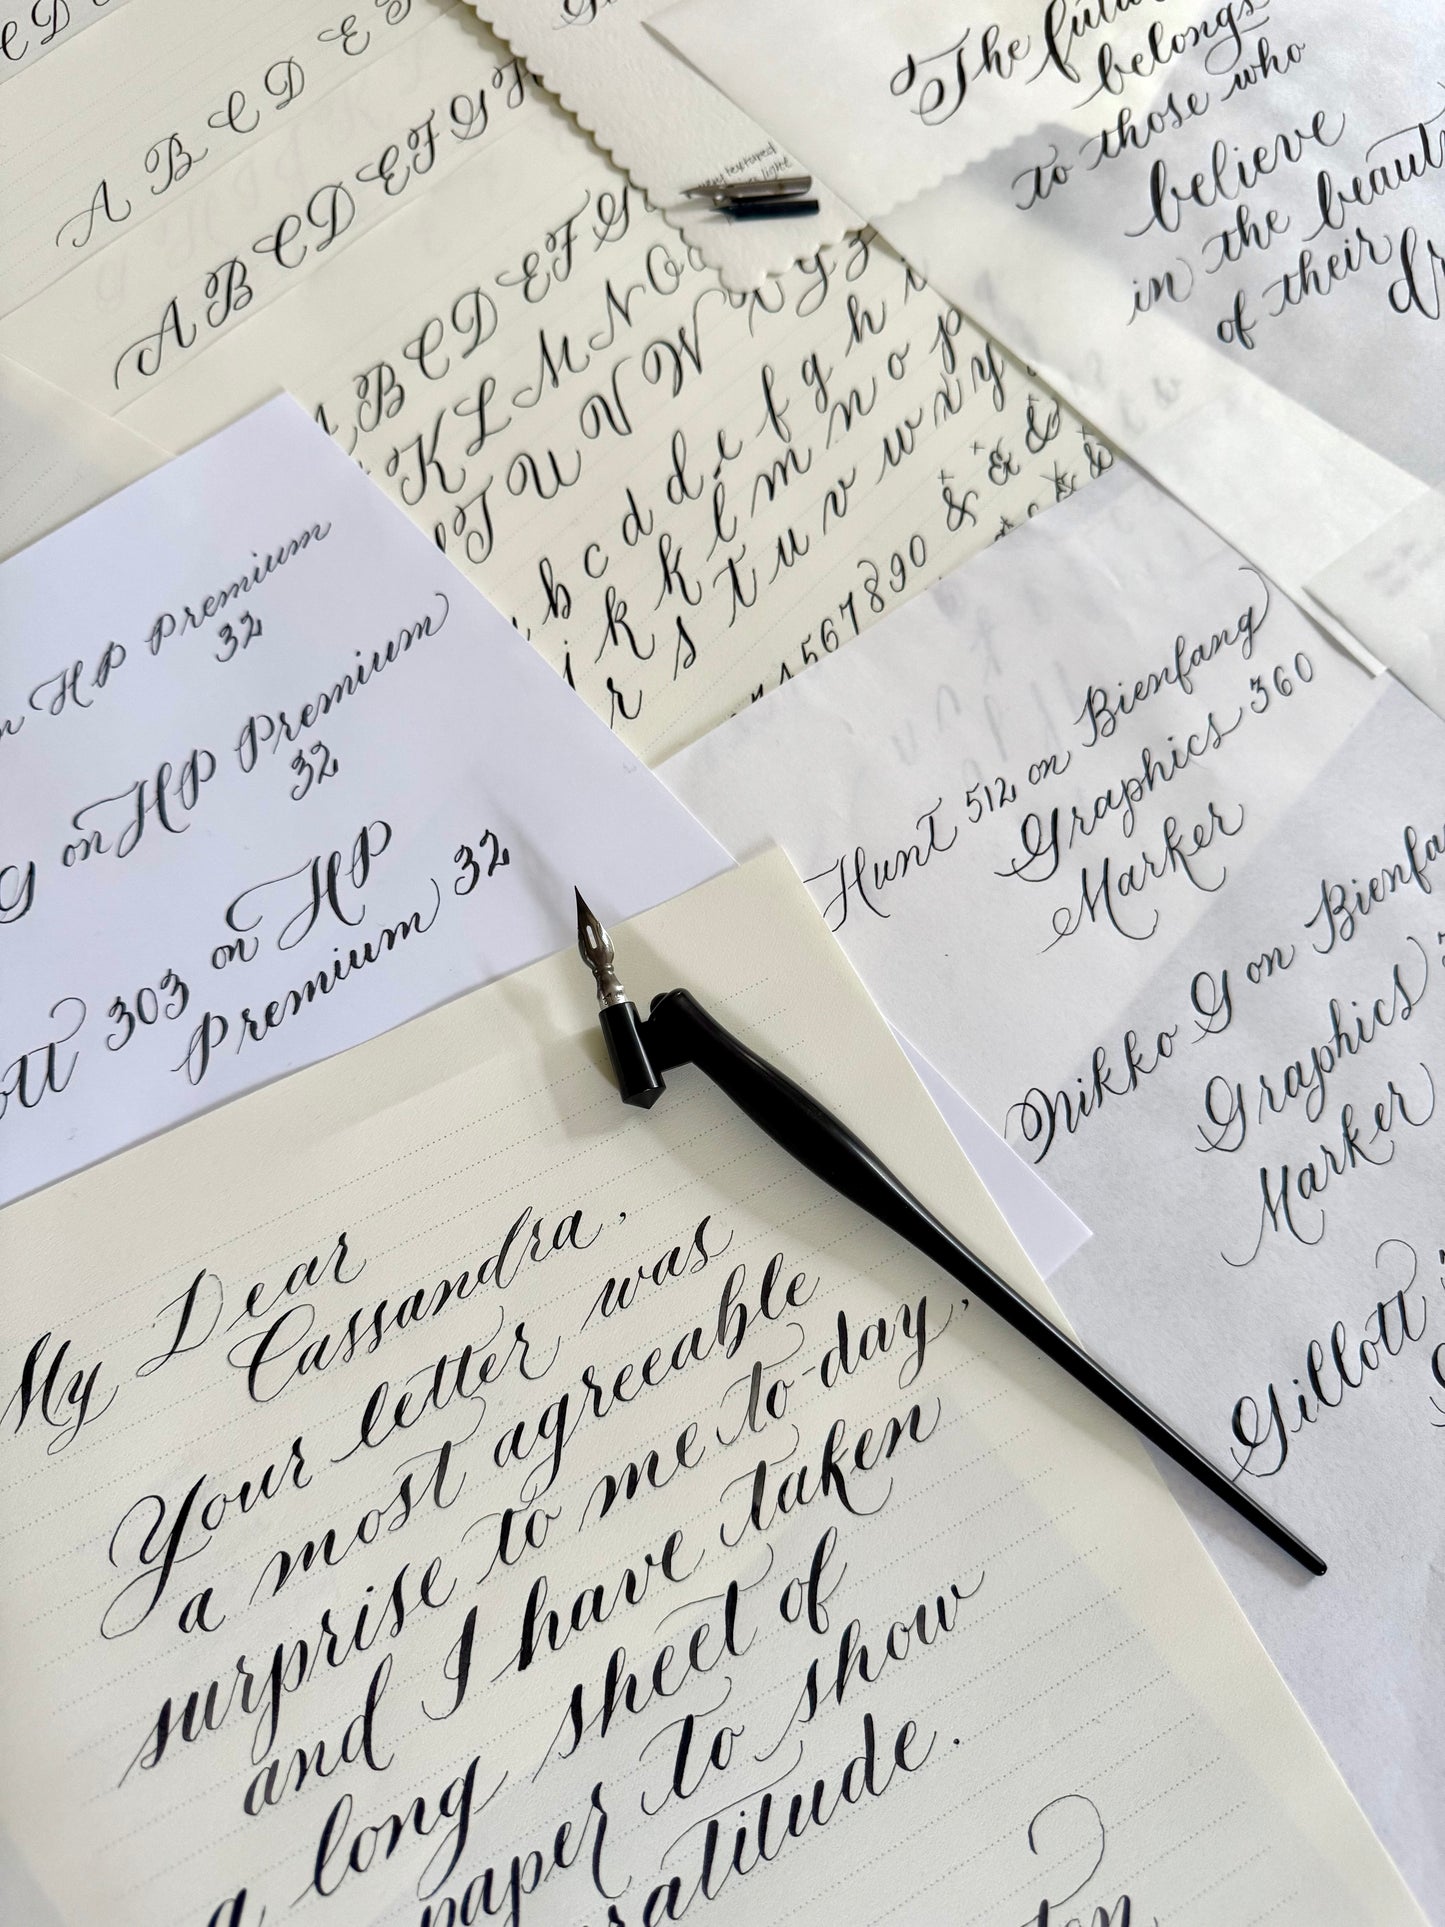 C D
A B C D E
A B C D E F G H
B C D E F G
K L M N O
T U V W X Y Z
b c d d e f g h i
j k k l m n o p
r s t u v w x y
1 5 6 7 8 9 0 & & &
The future
belongs
to those who
believe
in the beauty
of their
dr
HP Premium
32
G on HP Premium
32
ott 303 on HP
Premium 32
Hunt 512 on Bienfang
Graphics 360
Marker
Nikko G on Bienfa
Graphics 3
Marker
Gillott
My Dear
Cassandra,
Your letter was
a most agreeable
surprise to me to-day,
and I have taken
a long sheet of
paper to show
ratitude.